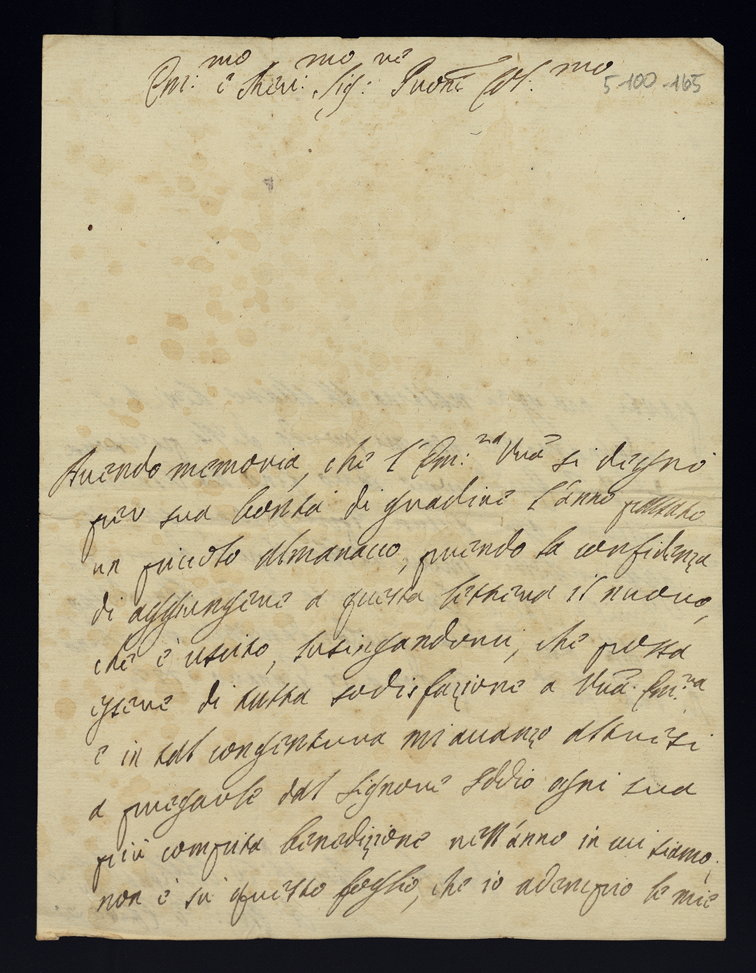 Em:mo e Reu:mo Sig:re Prone Col.mo
5-100-165
Auendo memoria, che l'Em:za Vrã si degnò
per sua bontà di gradire l'anno passato
un piccolo almanacco, prendo la confidenza
di aggiungere a questa lettera il nuouo,
che è uscito, lusingandomi, che possa
essere di tutta sodisfazione a Vrã Em:za
e in tal congentura mi auanzo altresi
a pregarle dal Signore Iddio ogni sua
più compita benedizione nell'anno in cui siamo;
non è sù questo foglio, che io adempio le mie